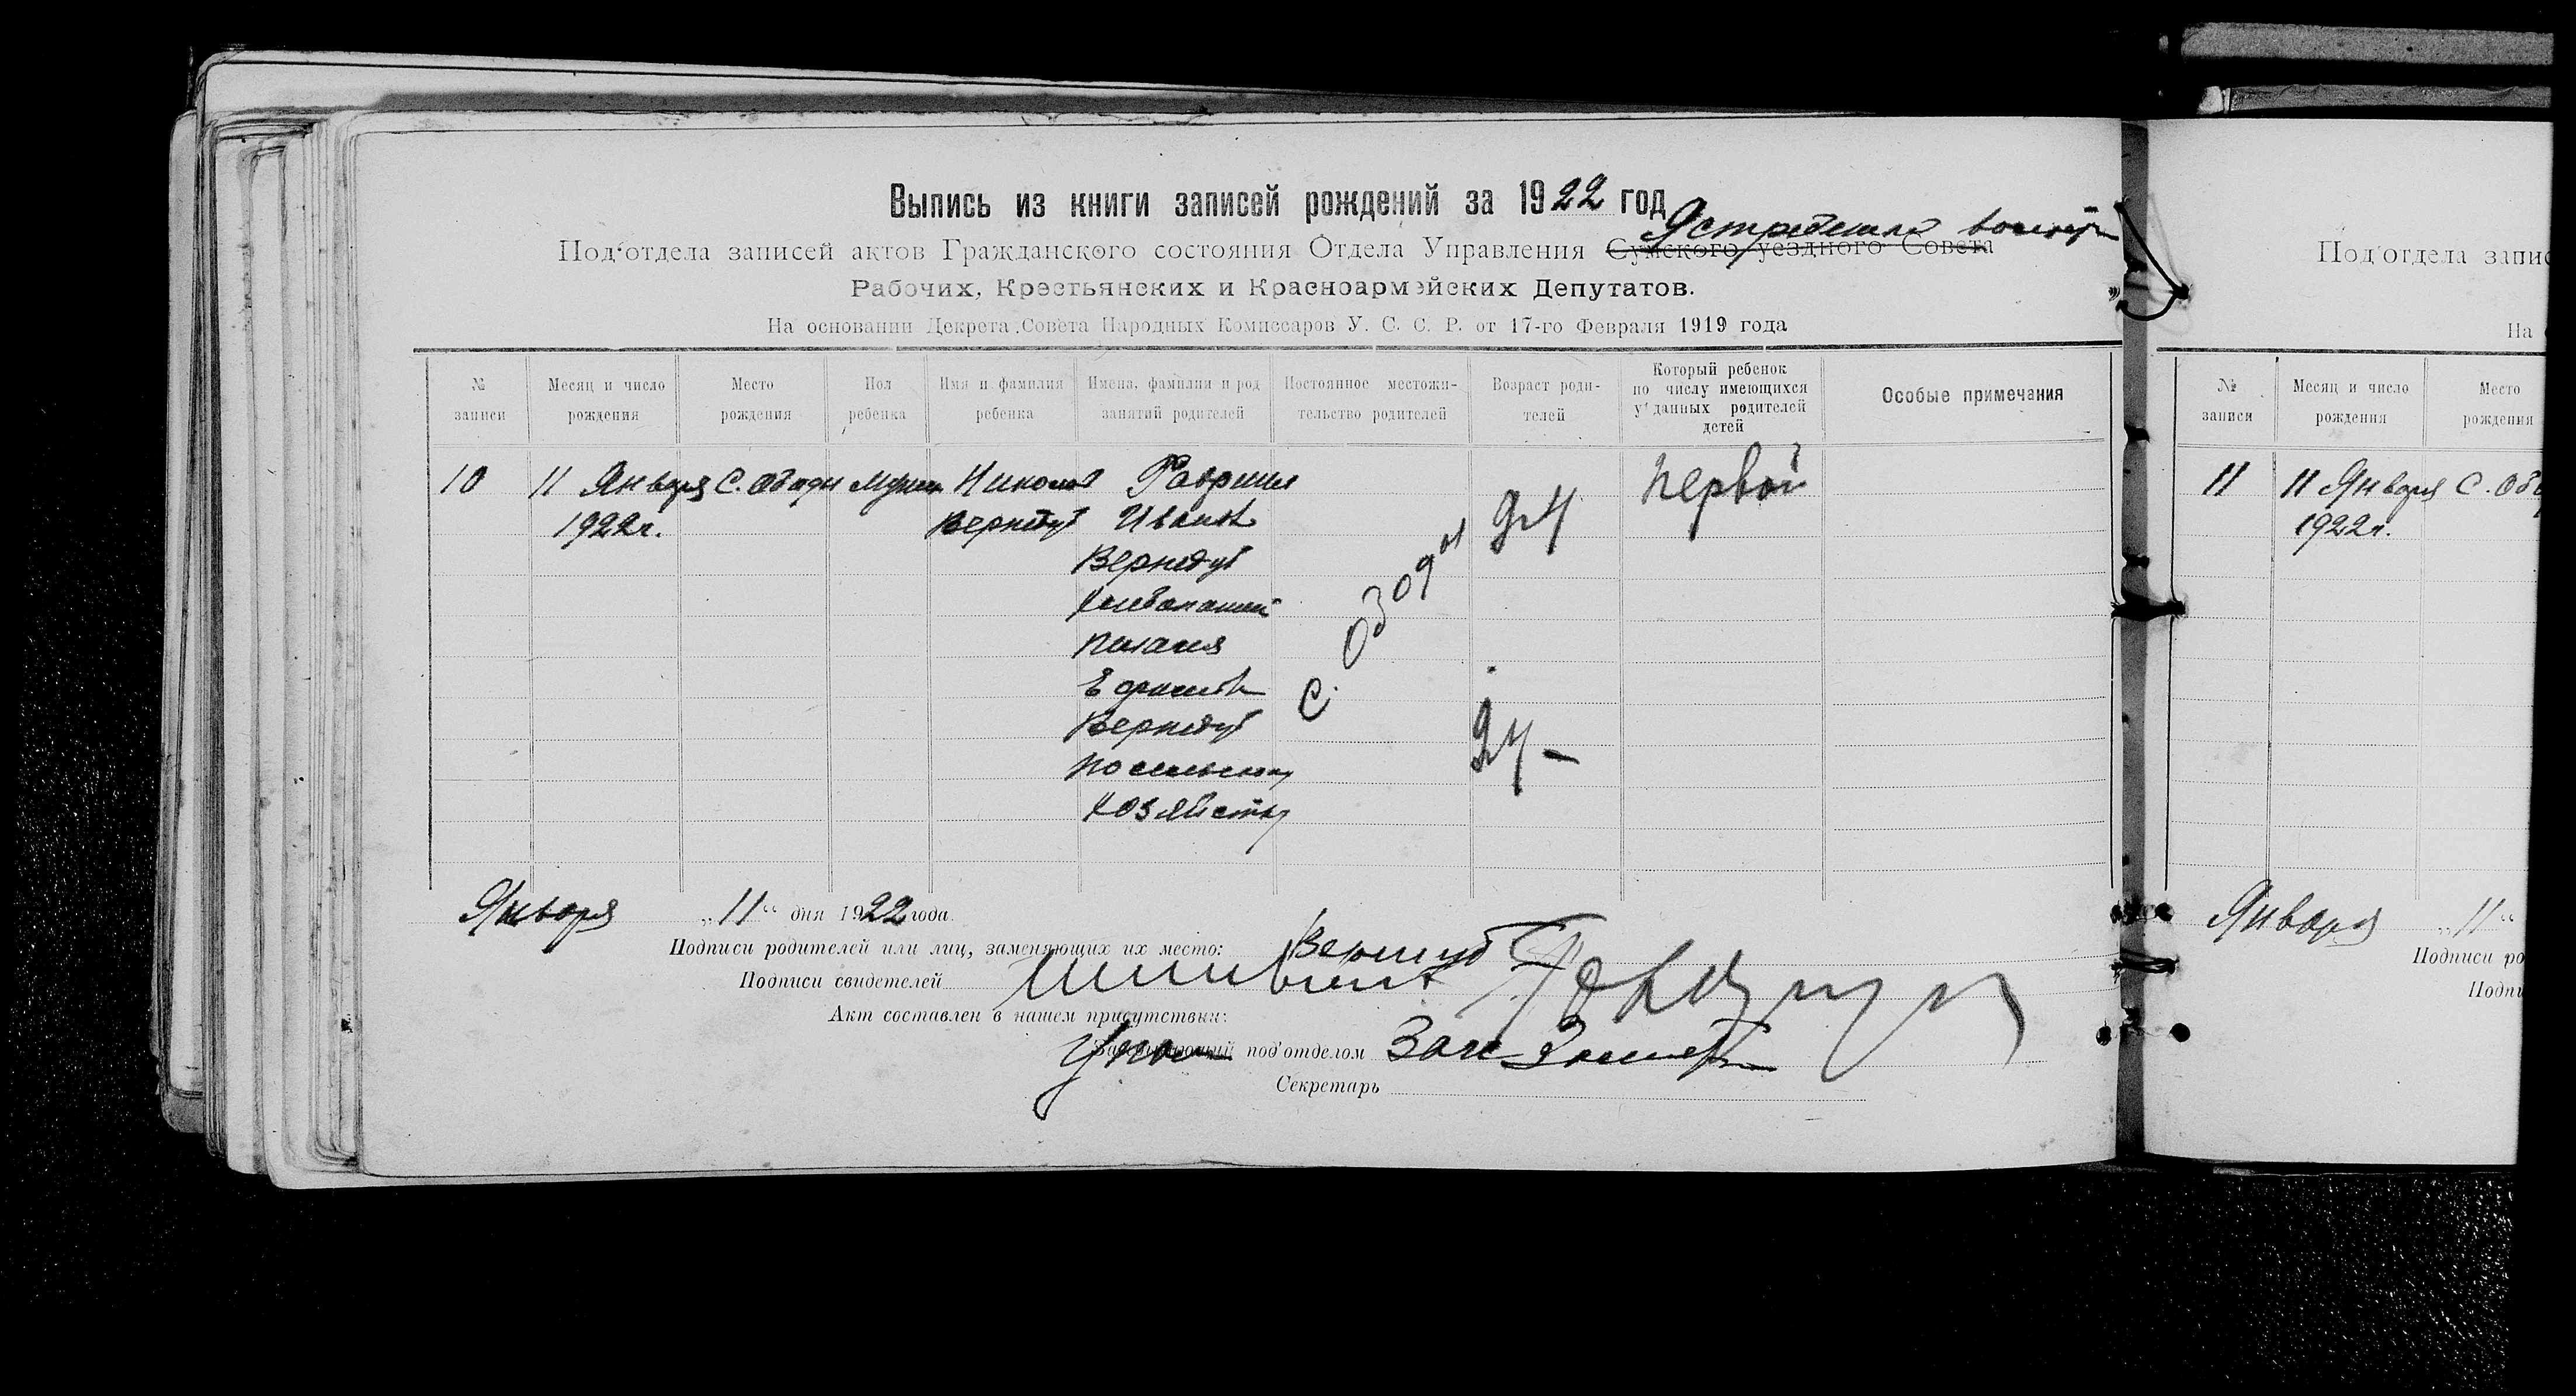 Выпись из книги записей рождений за 1922 год
Под'отдела записей актов Гражданского состояния Отдела Управления Сумского уездного Совета
Рабочих, Крестьянских и Красноармейских Депутатов.
На основании Декрета Совета Народных Комиссаров У. С. С. Р. от 17-го Февраля 1919 года
№ записи
Месяц и число рождения
Место рождения
Пол ребенка
Имя и фамилия ребенка
Имена, фамилии и род занятий родителей
Постоянное местожительство родителей
Возраст родителей
Который ребенок по числу имеющихся у данных родителей детей
Особые примечания
10
11 Января
1922г.
С.
Николай
Вернидуб
Гавриил
Иванов
Вернидуб
Хлебопашец
Ефимов
Вернидуб
по сельскому
хозяйству
С.
24
24 -
первой
Января „11“ дня 1922 года.
Подписи родителей или лиц, заменяющих их место: Вернидуб
Подписи свидетелей
Акт составлен в нашем присутствии:
Заведующий под'отделом
Секретарь
Под'отдела запис
На
№ записи
Месяц и число рождения
Место рождения
11
11 Января
1922г.
С.
Января „11“
Подписи ро
Подпи